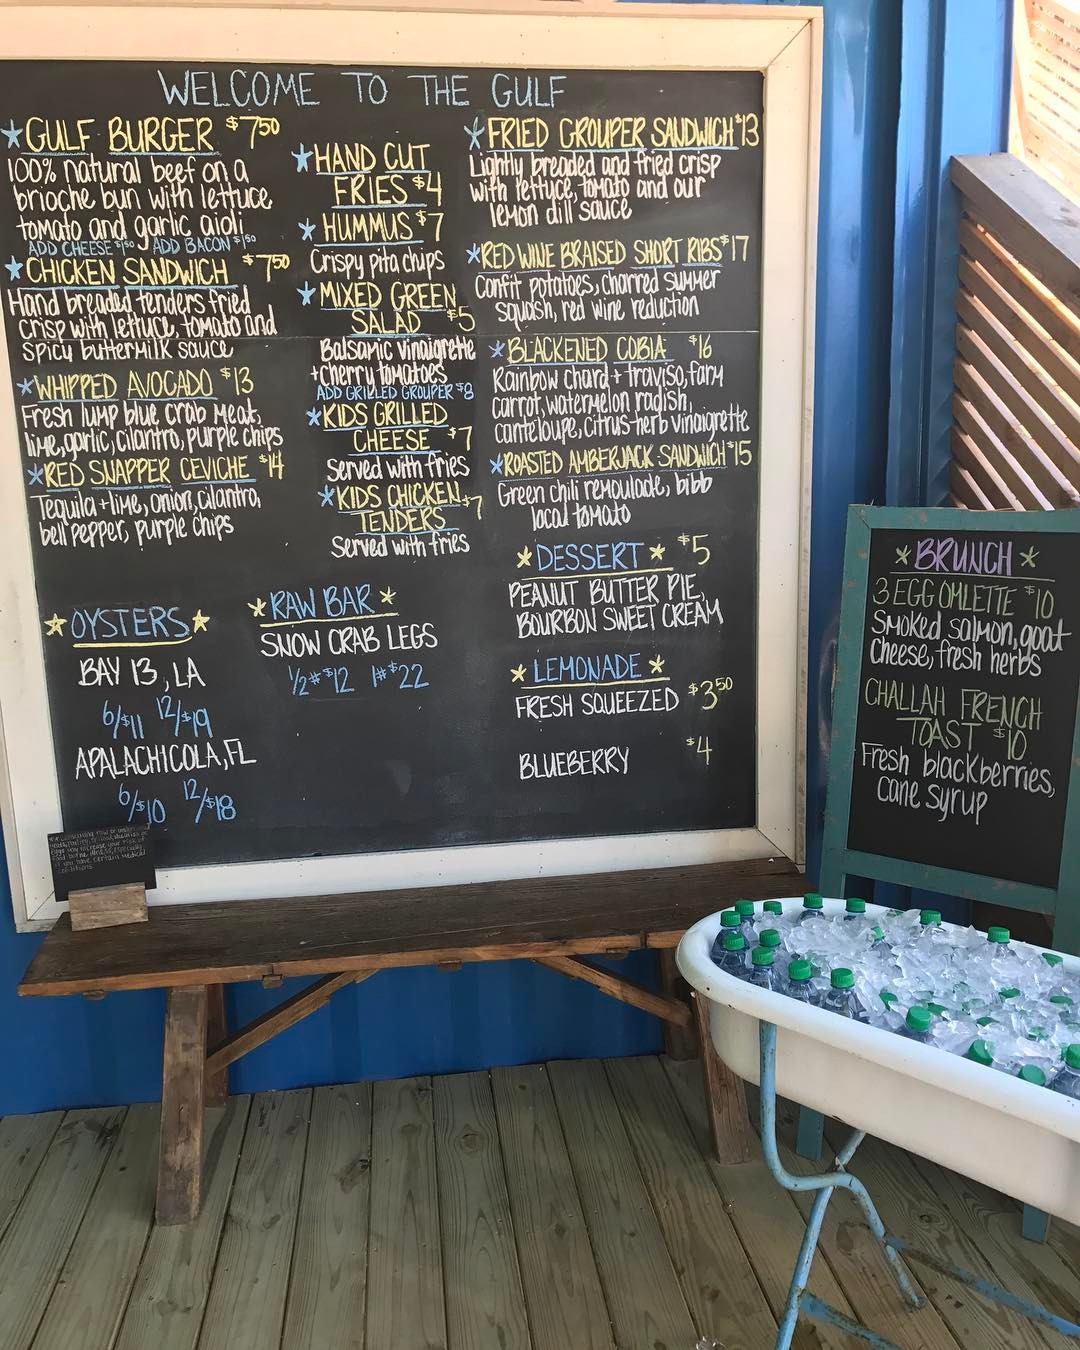 WELCOME TO THE GULF
GULF BURGER $7.50
100% natural beef on a
brioche bun with lettuce
tomato and garlic aioli
ADD CHEESE $1.50 ADD BACON $1.50
CHICKEN SANDWICH $7.50
Hand breaded tenders fried
crisp with lettuce, tomato and
spicy buttermilk sauce
WHIPPED AVOCADO $13
Fresh lump blue crab meat,
lime, garlic, cilantro, purple chips
RED SNAPPER CEVICHE $14
Tequila + lime, onion, cilantro,
bell pepper, purple chips
HAND CUT
FRIES $4
HUMMUS $7
Crispy pita chips
MIXED GREEN
SALAD $5
Balsamic vinaigrette
+ cherry tomatoes
ADD GRILLED GROUPER $8
KIDS GRILLED
CHEESE $7
Served with fries
KIDS CHICKEN
TENDERS $7
Served with fries
FRIED GROUPER SANDWICH $13
Lightly breaded and fried crisp
with lettuce, tomato and our
lemon dill sauce
RED WINE BRAISED SHORT RIBS $17
Confit potatoes, charred summer
squash, red wine reduction
BLACKENED COBIA $16
Rainbow chard + traviso, farm
carrot, watermelon radish,
canteloupe, citrus-herb vinaigrette
ROASTED AMBERJACK SANDWICH $15
Green chili remoulade, bibb
local tomato
DESSERT $5
PEANUT BUTTER PIE,
BOURBON SWEET CREAM
LEMONADE
FRESH SQUEEZED $3.50
BLUEBERRY $4
OYSTERS
BAY 13, LA
6/$11 12/$19
APALACHICOLA, FL
6/$10 12/$18
RAW BAR
SNOW CRAB LEGS
1/2# $12 1# $22
BRUNCH
3 EGG OMLETTE $10
Smoked salmon, goat
cheese, fresh herbs
CHALLAH FRENCH
TOAST $10
Fresh blackberries,
cane syrup